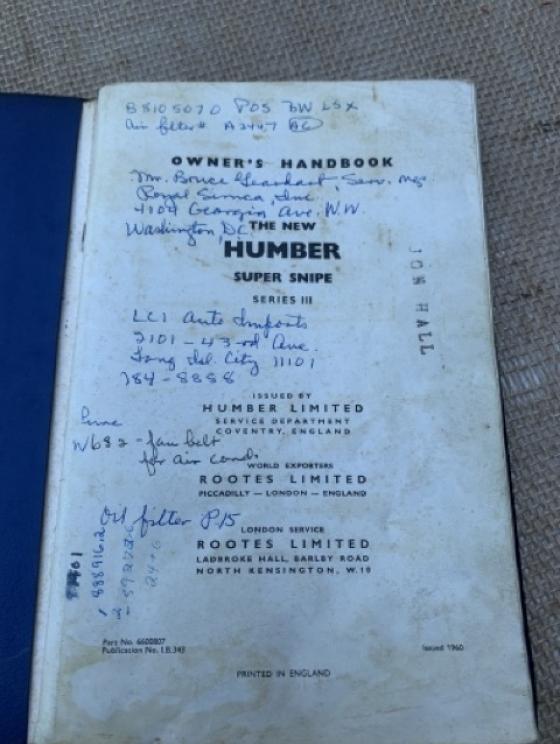 B8105070 POS BW LSX
Air filter # A244.7 AG
OWNER'S HANDBOOK
Mr. Bruce Gearhart, Serv. Mgr.
Royal Simca, Inc.
4104 Georgia Ave. N.W.
Washington, DC
THE NEW
HUMBER
SUPER SNIPE
SERIES III
JON HALL
LCI Auto Imports
2101 - 43rd Ave.
Long Isl. City 11101
784-8888
ISSUED BY
HUMBER LIMITED
SERVICE DEPARTMENT
COVENTRY, ENGLAND
W682 - fan belt
for air cond.
WORLD EXPORTERS
ROOTES LIMITED
PICCADILLY — LONDON — ENGLAND
Oil filter P15
LONDON SERVICE
ROOTES LIMITED
LADBROKE HALL, BARLBY ROAD
NORTH KENSINGTON, W.10
Part No. 6600807
Publication No. I.B.343
Issued 1960
PRINTED IN ENGLAND